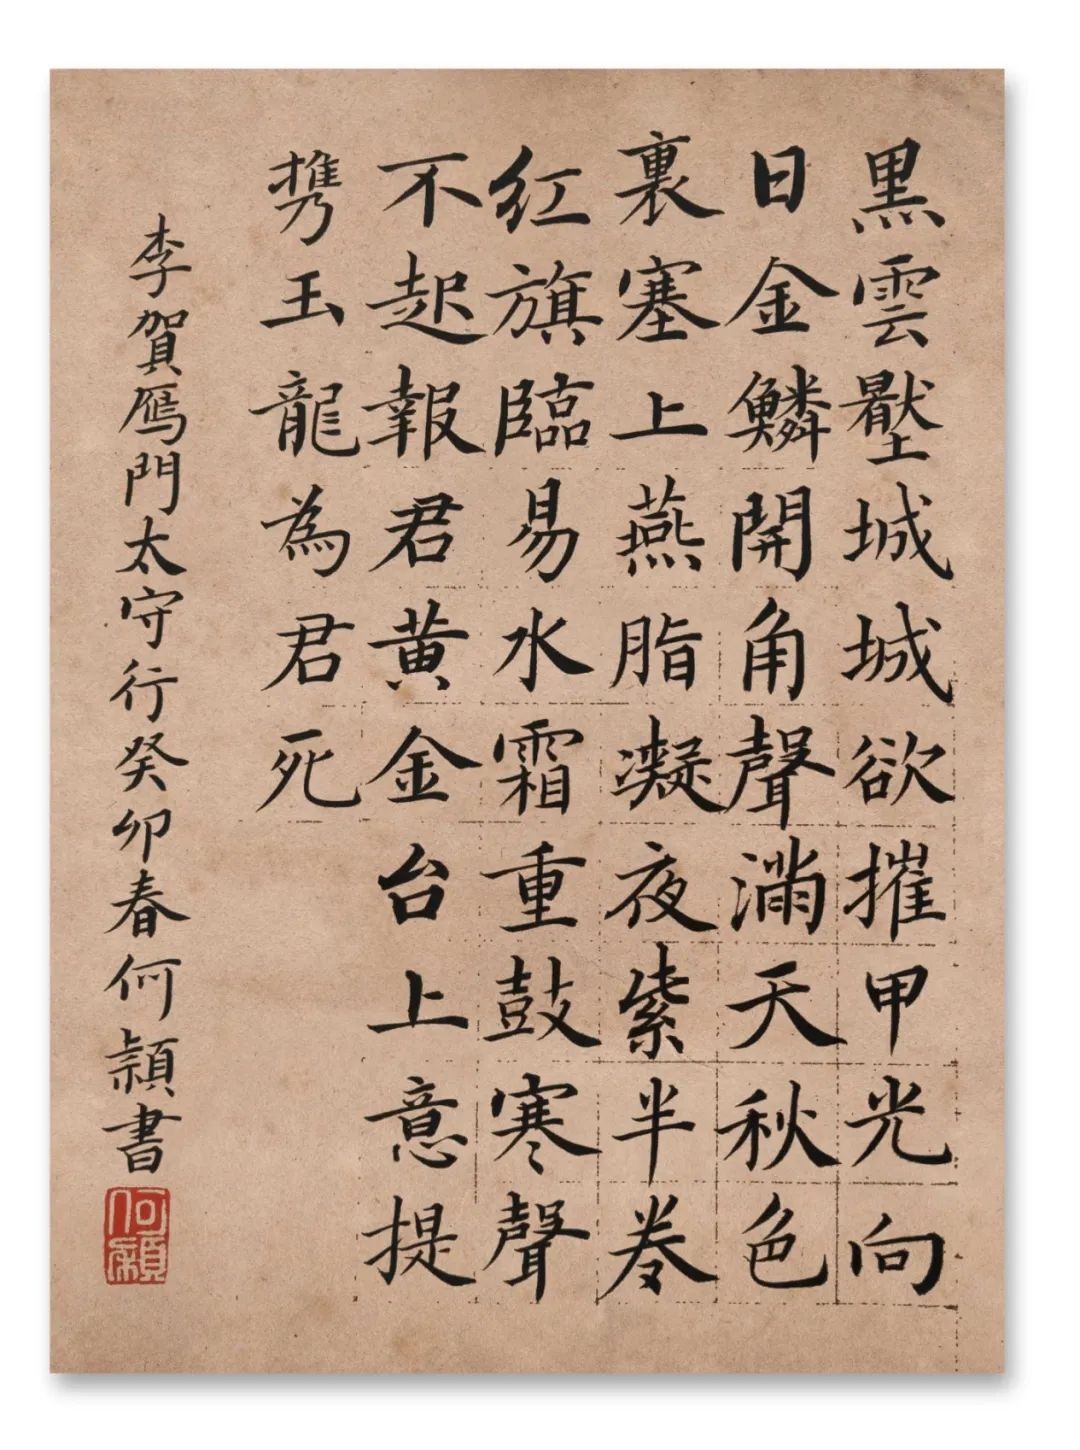 黑雲壓城城欲摧甲光向
日金鱗開角聲滿天秋色
裏塞上燕脂凝夜紫半卷
紅旗臨易水霜重鼓寒聲
不起報君黄金台上意提
携玉龍為君死
李賀鴈門太守行癸卯春何穎書
何穎